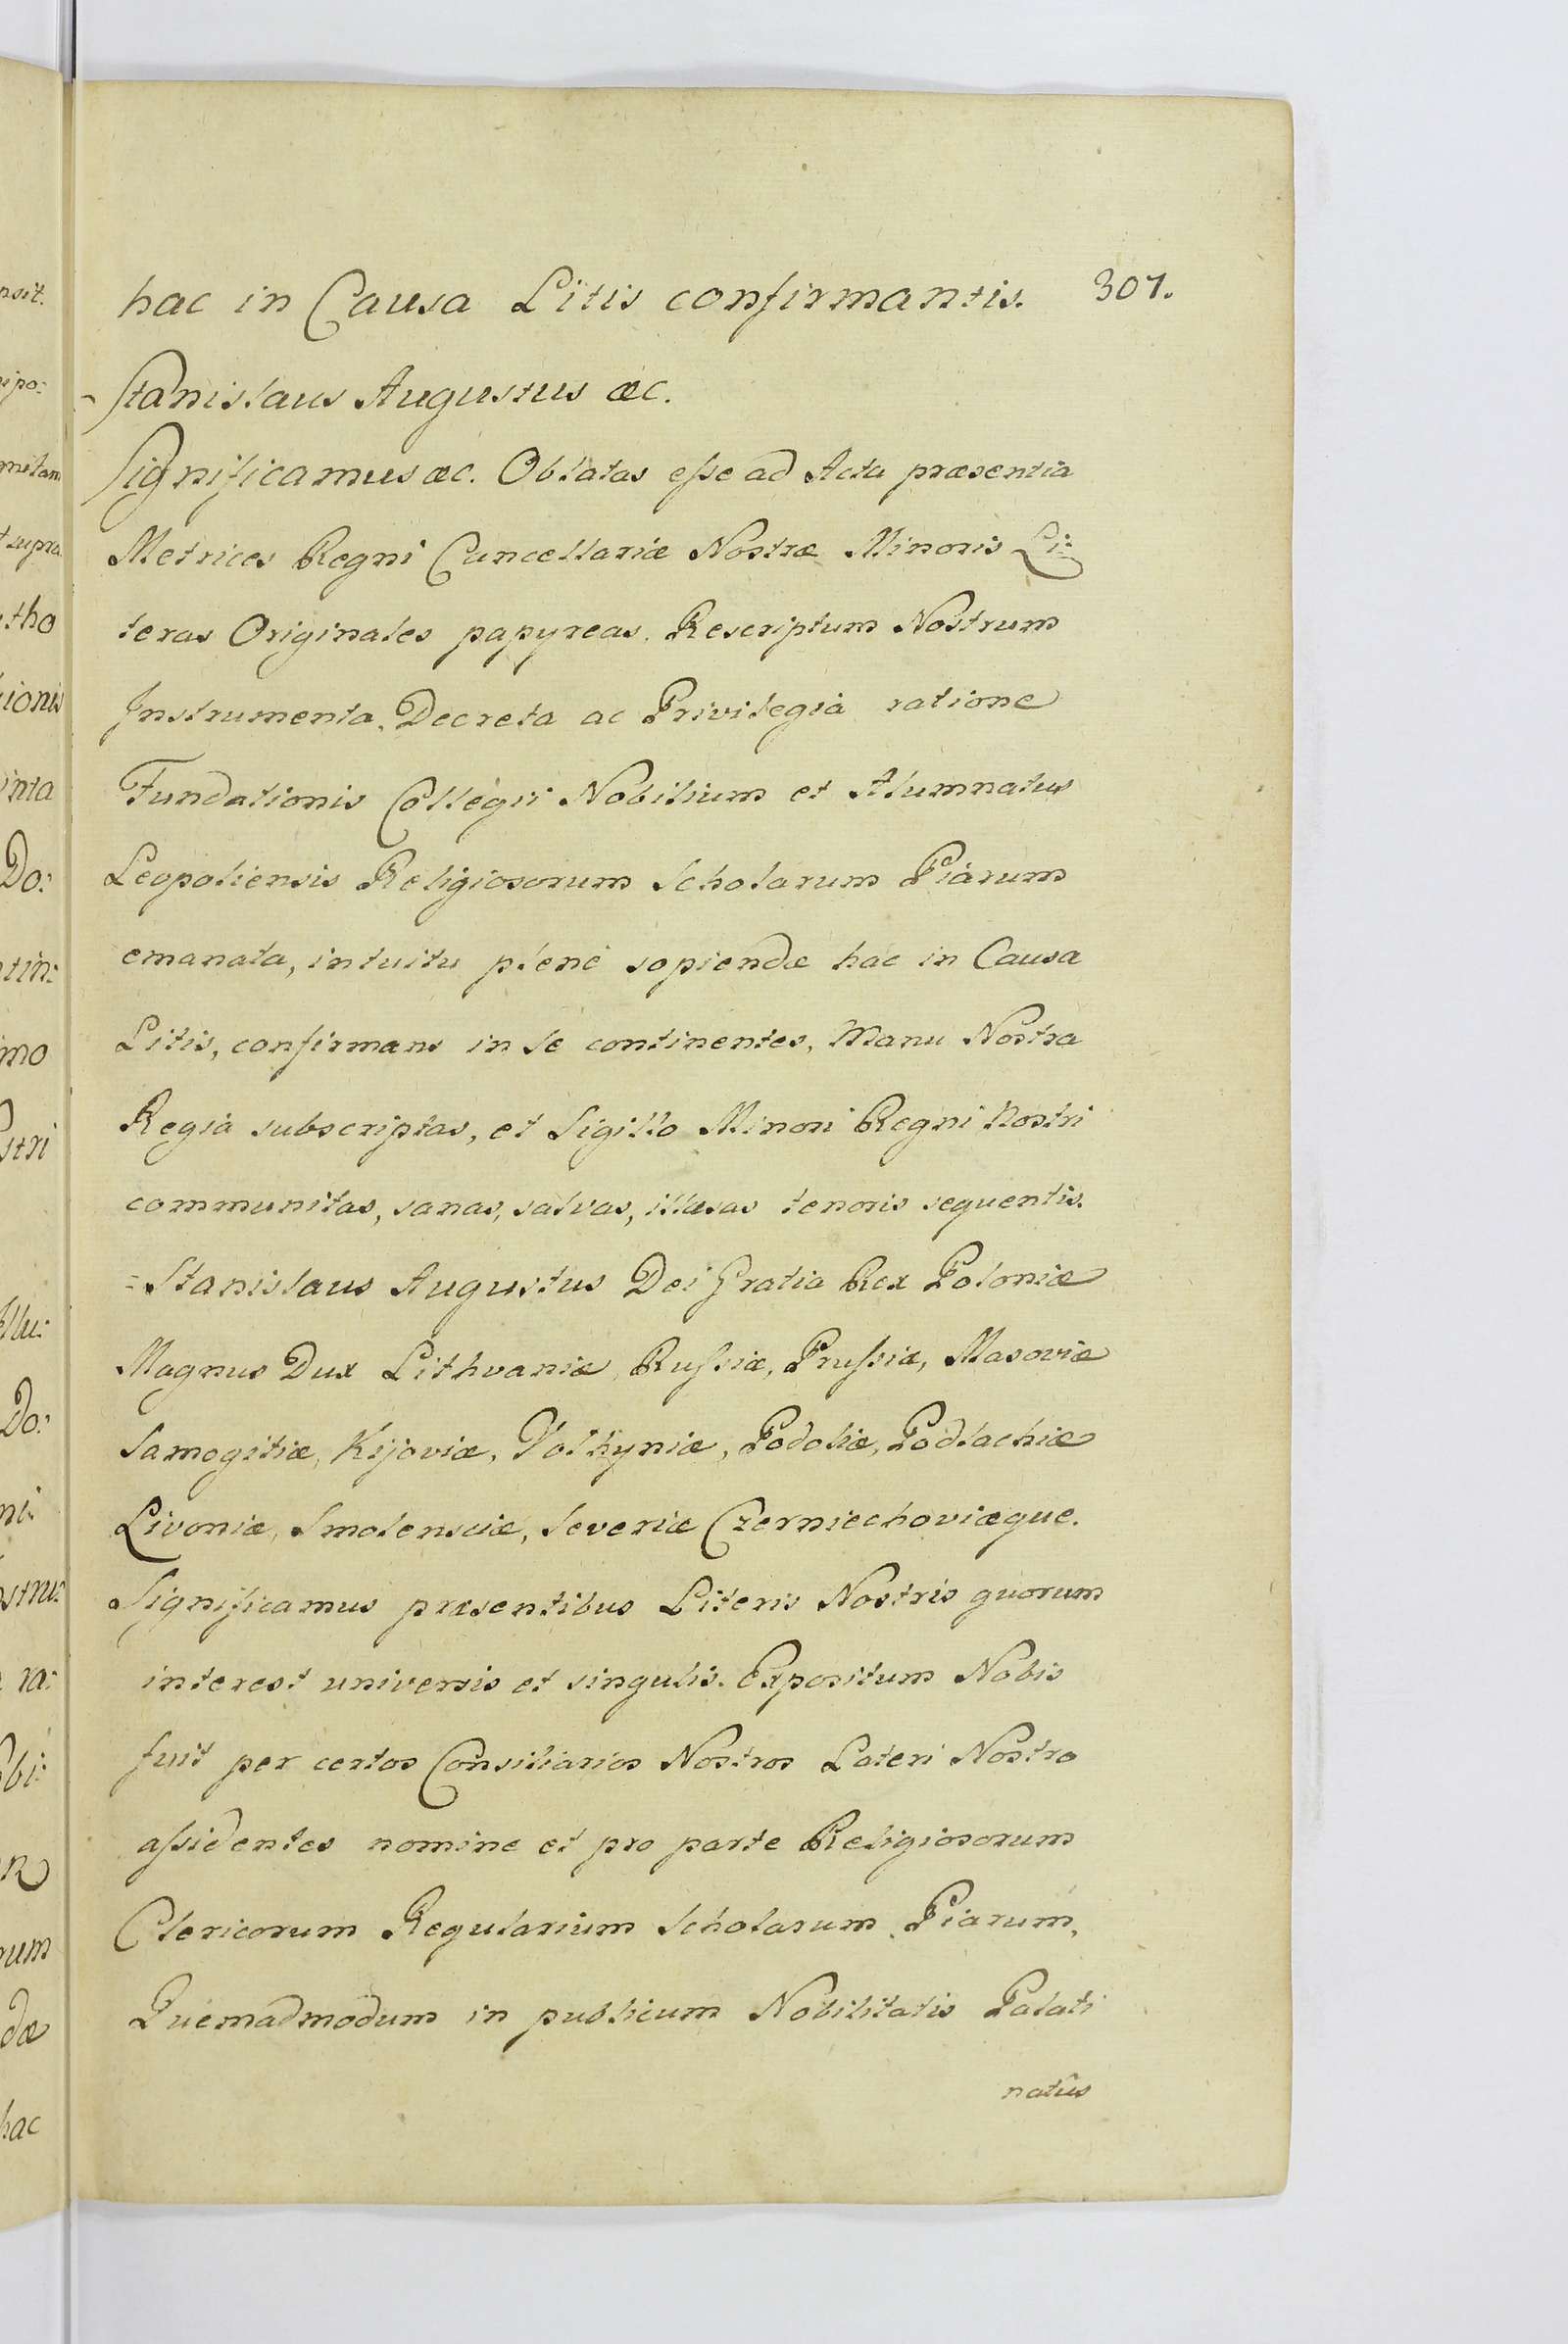 hac in Causa Litis confirmantis. 307.
Stanislaus Augustus æc.
Significamus æc. Oblatas eſse ad Acta præsentia
Metrices Regni Cancellariæ Nostræ Minoris Li:
teras Originales papyreas. Rescriptum Nostrum
Instrumenta, Decreta ac Privilegia ratione
Fundationis Collegii Nobilium et Alumnatus
Leopoliensis Religiosorum Scholarum Piarum
emanata, intuitu plenè sopiendæ hac in Causa
Litis, confirmans in se continentes, Manu Nostra
Regia subscriptas, et Sigillo Minori Regni Nostri
communitas, sanas, salvas, illæsas tenoris sequentis.
=Stanislaus Augustus Dei Gratia Rex Poloniæ
Magnus Dux Lithvaniæ, Ruſsiæ, Pruſsiæ, Masoviæ
Samogitiæ, Kijoviæ, Volhyniæ, Podoliæ, Podlachiæ
Livoniæ, Smolensciæ, Severiæ Czerniechoviæque.
Significamus præsentibus Literis Nostris quorum
interest universis et singulis. Expositum Nobis
fuit per certos Consiliarios Nostros Lateri Nostro
aſsidentes nomine et pro parte Religiosorum
Clericorum Regularium Scholarum Piarum,
Quemadmodum in publicum Nobilitatis Palati
natûs